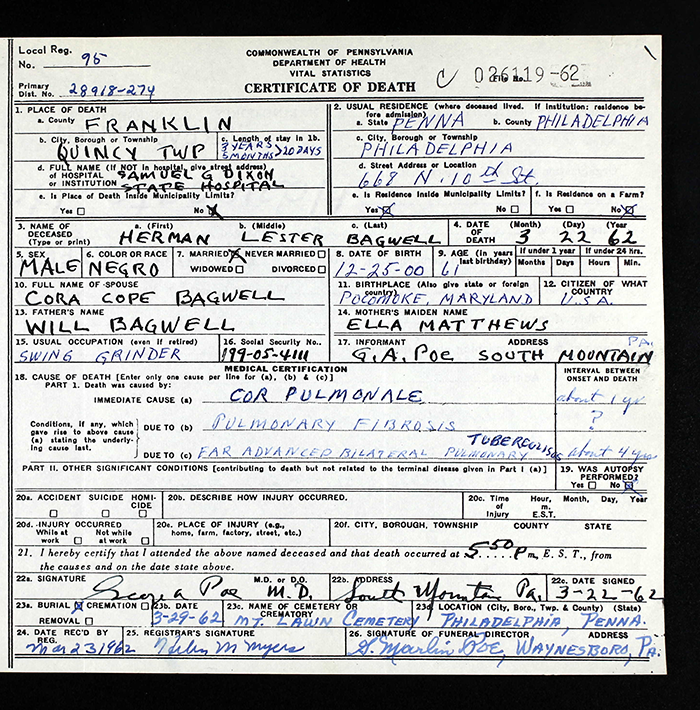 Local Reg. No. 95
Primary Dist. No. 28918-274
COMMONWEALTH OF PENNSYLVANIA
DEPARTMENT OF HEALTH
VITAL STATISTICS
CERTIFICATE OF DEATH
File No. 026119-62
1. PLACE OF DEATH
a. County FRANKLIN
b. City, Borough or Township QUINCY TWP
c. Length of stay in 1b. 3 YEARS 5 MONTHS 20 DAYS
d. FULL NAME (If NOT in hospital, give street address) of HOSPITAL or INSTITUTION SAMUEL G DIXON STATE HOSPITAL
e. Is Place of Death Inside Municipality Limits?
Yes No X
2. USUAL RESIDENCE (where deceased lived. If institution: residence before admission)
a. State PENNA b. County PHILADELPHIA
c. City, Borough or Township
PHILADELPHIA
d. Street Address or Location
668 N. 10th St.
e. Is Residence Inside Municipality Limits?
Yes X No
f. Is Residence on a Farm?
Yes No X
3. NAME OF DECEASED (Type or print) a. (First) b. (Middle) c. (Last)
HERMAN LESTER BAGWELL
4. DATE OF DEATH (Month) (Day) (Year)
3 22 62
5. SEX MALE
6. COLOR OR RACE NEGRO
7. MARRIED X NEVER MARRIED
WIDOWED DIVORCED
8. DATE OF BIRTH
12-25-00
9. AGE (in years last birthday) 61
If under 1 year Months Days
If under 24 hrs. Hours Min.
10. FULL NAME OF SPOUSE
CORA COPE BAGWELL
11. BIRTHPLACE (Also give state or foreign country)
POCOMOKE, MARYLAND
12. CITIZEN OF WHAT COUNTRY
U.S.A.
13. FATHER'S NAME
WILL BAGWELL
14. MOTHER'S MAIDEN NAME
ELLA MATTHEWS
15. USUAL OCCUPATION (even if retired)
SWING GRINDER
16. Social Security No.
199-05-4111
17. INFORMANT ADDRESS
G.A. POE SOUTH MOUNTAIN PA.
MEDICAL CERTIFICATION
18. CAUSE OF DEATH [Enter only one cause per line for (a), (b) & (c)]
PART 1. Death was caused by:
INTERVAL BETWEEN ONSET AND DEATH
IMMEDIATE CAUSE (a) COR PULMONALE about 1 yr
Conditions, if any, which gave rise to above cause (a) stating the underlying cause last.
DUE TO (b) PULMONARY FIBROSIS ?
DUE TO (c) FAR ADVANCED BILATERAL PULMONARY TUBERCULOSIS about 4 yrs
PART II. OTHER SIGNIFICANT CONDITIONS [contributing to death but not related to the terminal disease given in Part I (a)]
19. WAS AUTOPSY PERFORMED?
Yes No X
20a. ACCIDENT SUICIDE HOMICIDE
20b. DESCRIBE HOW INJURY OCCURRED.
20c. Time of Injury Hour, m. E.S.T. Month, Day, Year
20d. INJURY OCCURRED
While at work Not while at work
20e. PLACE OF INJURY (e.g., home, farm, factory, street, etc.)
20f. CITY, BOROUGH, TOWNSHIP COUNTY STATE
21. I hereby certify that I attended the above named deceased and that death occurred at 5:50 P m, E. S. T., from the causes and on the date state above.
22a. SIGNATURE M.D. or D.O.
George A Poe M.D.
22b. ADDRESS
South Mountain Pa.
22c. DATE SIGNED
3-22-62
23a. BURIAL X CREMATION
REMOVAL
23b. DATE
3-29-62
23c. NAME OF CEMETERY OR CREMATORY
MT. LAWN CEMETERY
23d. LOCATION (City, Boro., Twp. & County) (State)
PHILADELPHIA, PENNA.
24. DATE REC'D BY REG.
Mar 23 1962
25. REGISTRAR'S SIGNATURE
Helen M Myers
26. SIGNATURE OF FUNERAL DIRECTOR ADDRESS
G. Marlin Poe, WAYNESBORO, PA.